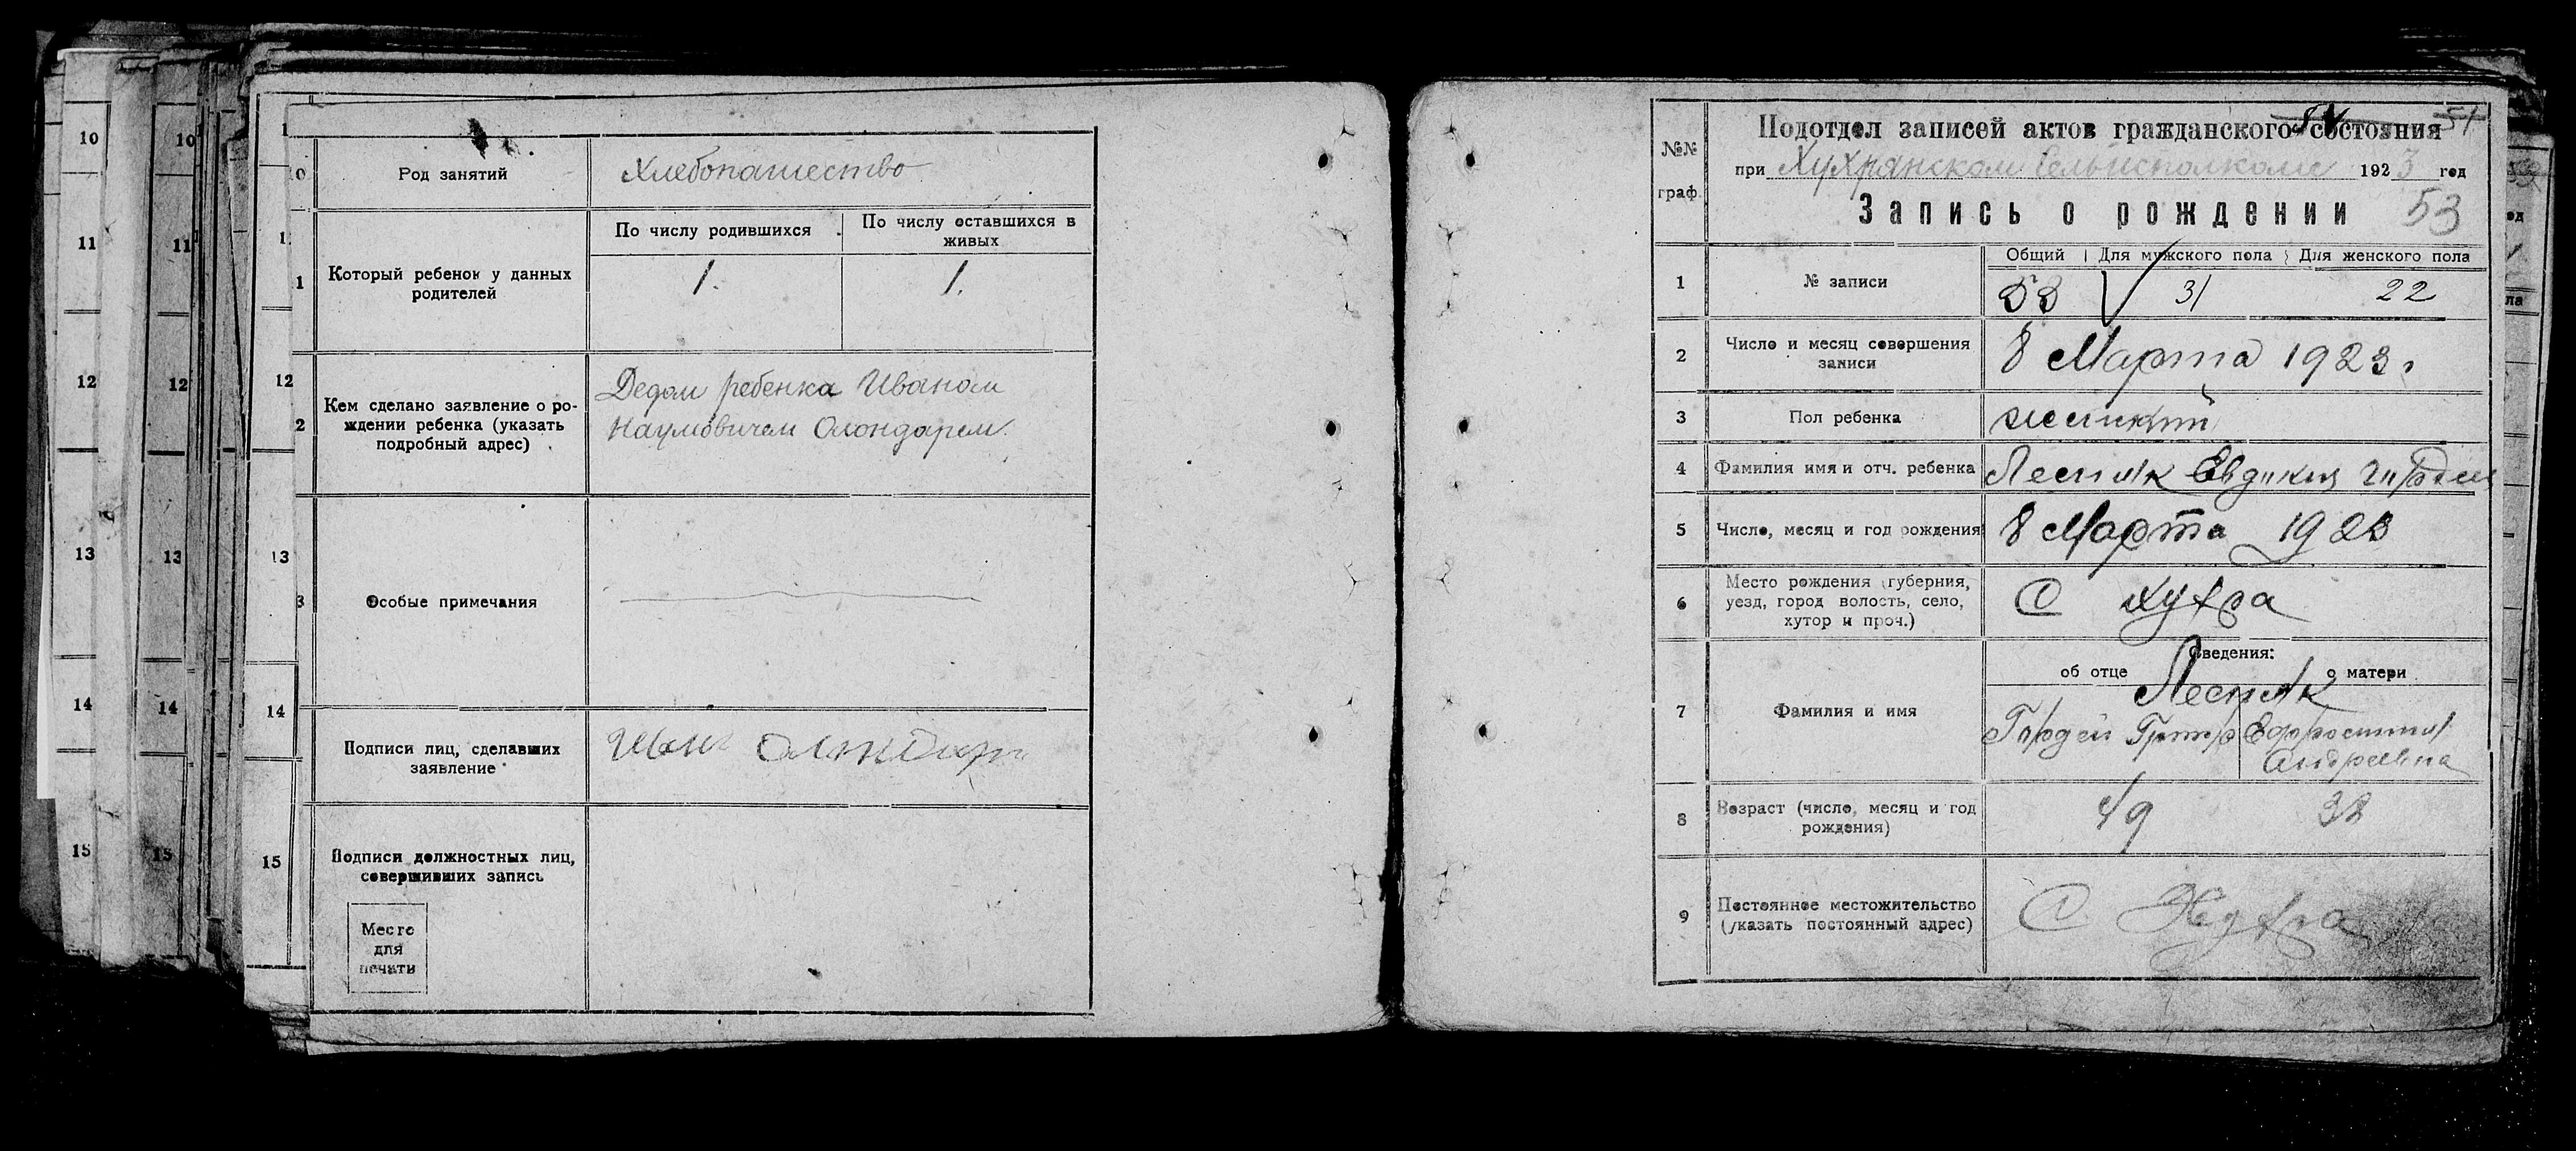 10
11
12
13
14
15
10
11
12
13
14
15
12
13
14
15
Род занятий
Хлебопашество
Который ребенок у данных
родителей
По числу родившихся
По числу оставшихся в
живых
1.
1.
Кем сделано заявление о ро-
ждении ребенка (указать
подробный адрес)
Дедом ребенка Иваном
Наумовичем
Особые примечания
Подписи лиц, сделавших
заявление
Подписи должностных лиц,
совершивших запись
Место
для
печати
№№
граф.
Подотдел записей актов гражданского состояния
51
при Хухрянском Сельисполкоме 1923 год
Запись о рождении 53
1
№ записи
Общий Для мужского пола Для женского пола
53 31 22
2
Число и месяц совершения
записи
8 Марта 1923 г
3
Пол ребенка
женский
4
Фамилия имя и отч. ребенка
Лесняк Евдокия
5
Число, месяц и год рождения
8 Марта 1923
6
Место рождения (губерния,
уезд, город волость, село,
хутор и проч.)
С Хухра
7
Фамилия и имя
Сведения:
об отце о матери
Лесняк
Гордей
Ефросиния
Андреевна
8
Возраст (число, месяц и год
рождения)
49 38
9
Постоянное местожительство
(указать постоянный адрес)
С Хухра